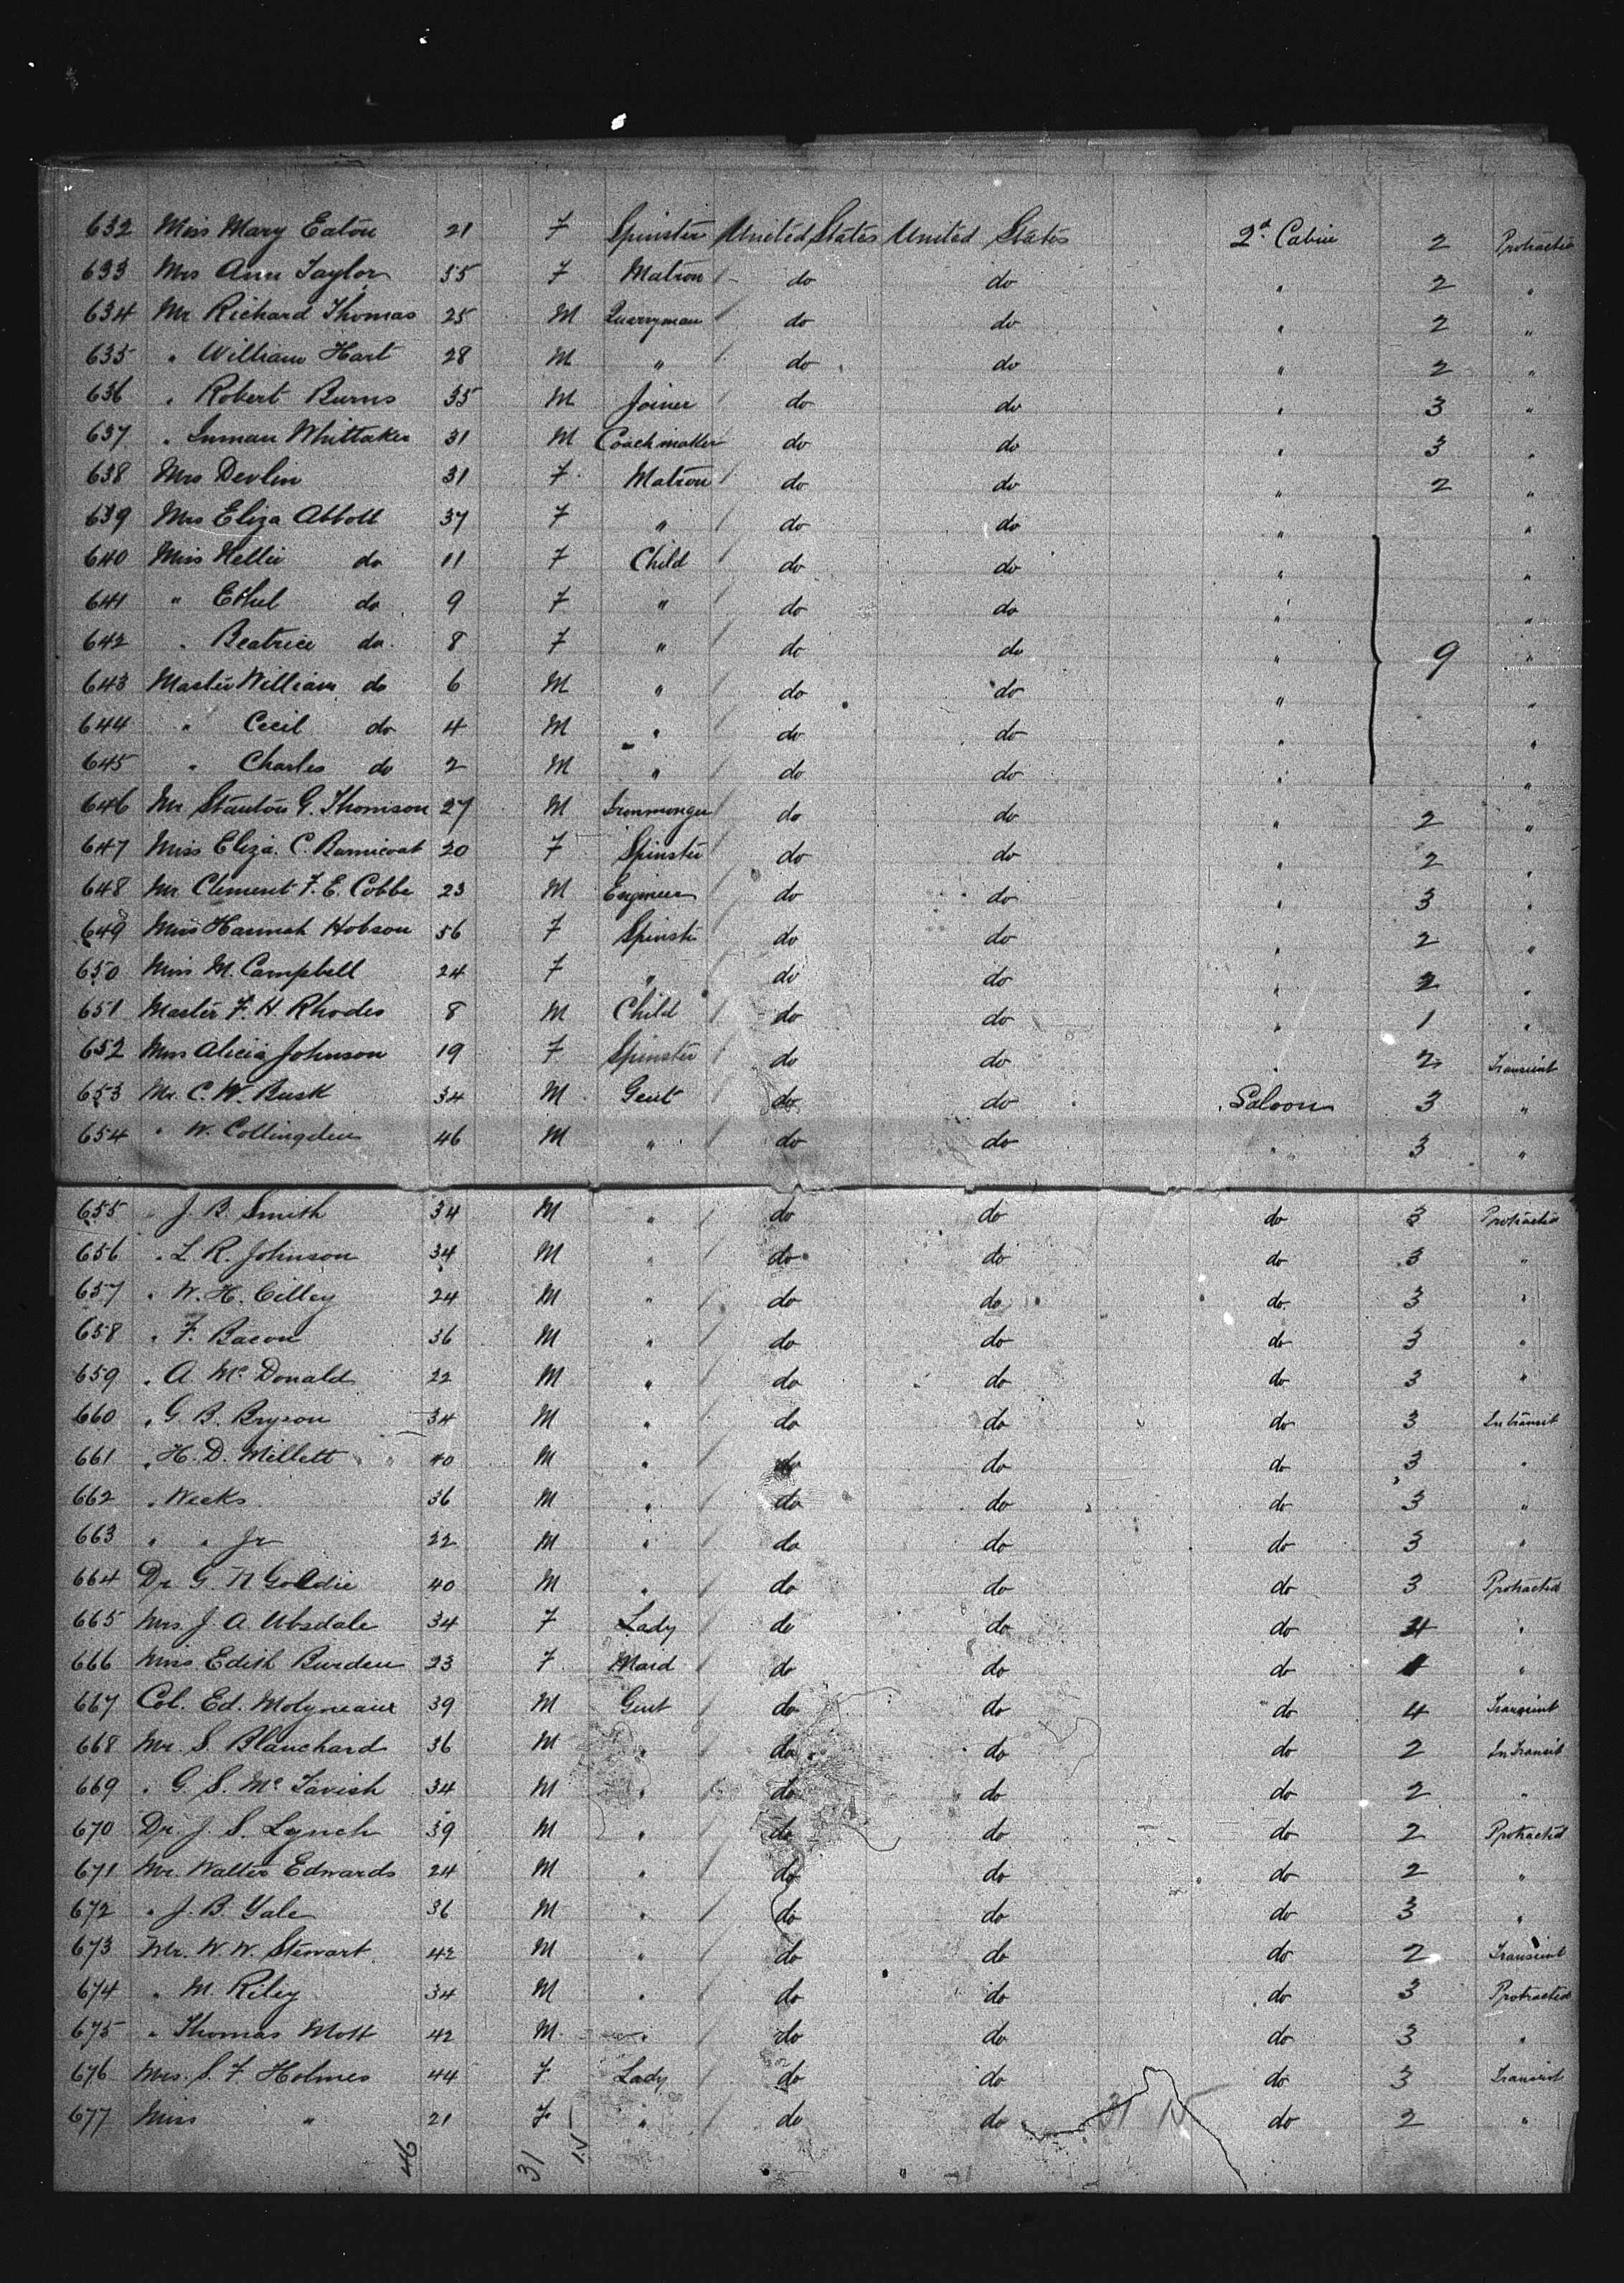 632 Miss Mary Eaton 21 F Spinster United States United States 2d Cabin 2 Protracted
633 Mrs Ann Taylor 55 F Matron do do " 2 "
634 Mr Richard Thomas 25 M Quarryman do do " 2 "
635 " William Hart 28 M " do do " 2 "
636 " Robert Burns 35 M Joiner do do " 3 "
637 " Inman Whittaker 31 M Coachmaker do do " 3 "
638 Mrs Devlin 31 F Matron do do " 2 "
639 Mrs Eliza Abbott 37 F " do do " "
640 Miss Nellie do 11 F Child do do " "
641 " Ethel do 9 F " do do " "
642 " Beatrice do 8 F " do do " 9 "
643 Master William do 6 M " do do " "
644 " Cecil do 4 M " do do " "
645 " Charles do 2 M " do do " "
646 Mr Stanton G. Thomson 27 M Ironmonger do do " 2 "
647 Miss Eliza. C. Barnicoat 20 F Spinster do do " 2 "
648 Mr. Clement F. E. Cobbe 23 M Engineer do do " 3 "
649 Miss Hannah Hobson 56 F Spinstr do do " 2 "
650 Miss M. Campbell 24 F " do do " 2 "
651 Master F. H Rhodes 8 M Child do do " 1 "
652 Miss Alicia Johnson 19 F Spinster do do " 2 Transient
653 Mr. C. W. Busk 34 M Gent do do Saloon 3 "
654 " W. 46 M " do do " 3 "
655 " J. B. Smith 34 M " do do do 3 Protracted
656 " L. R. Johnson 34 M " do do do 3 "
657 " W. H. Cilley 24 M " do do do 3 "
658 " F. Bacon 36 M " do do do 3 "
659 " A. Mc Donald 22 M " do do do 3 "
660 " G. B. Bryson 34 M " do do do 3 In transit
661 " H. D. Millett 40 M " do do do 3 "
662 " Weeks 36 M " do do do 3 "
663 " " Jr 22 M " do do do 3 "
664 Dr G. N Goldie 40 M " do do do 3 Protracted
665 Mrs. J. A. Ubsdale 34 F Lady do do do 4 "
666 Miss Edith Burden 23 F Maid do do do 1 "
667 Col. Ed. Molyneaux 39 M Gent do do do 4 Transient
668 Mr. S. Blanchard 36 M " do do do 2 In Transit
669 " G. S. Mc Tavish 34 M " do do do 2 "
670 Dr. J. S. Lynch 39 M " do do do 2 Protracted
671 Mr. Walter Edwards 24 M " do do do 2 "
672 " J. B. Yale 36 M " do do do 3 "
673 Mr. W. W. Stewart 42 M " do do do 2 Transient
674 " M. Riley 34 M " do do do 3 Protracted
675 " Thomas Mott 42 M " do do do 3 "
676 Mrs. S. F Holmes 44 F Lady do do do 3 Transient
677 Miss " 21 F " do do 31 15 do 2 "
46 31 15